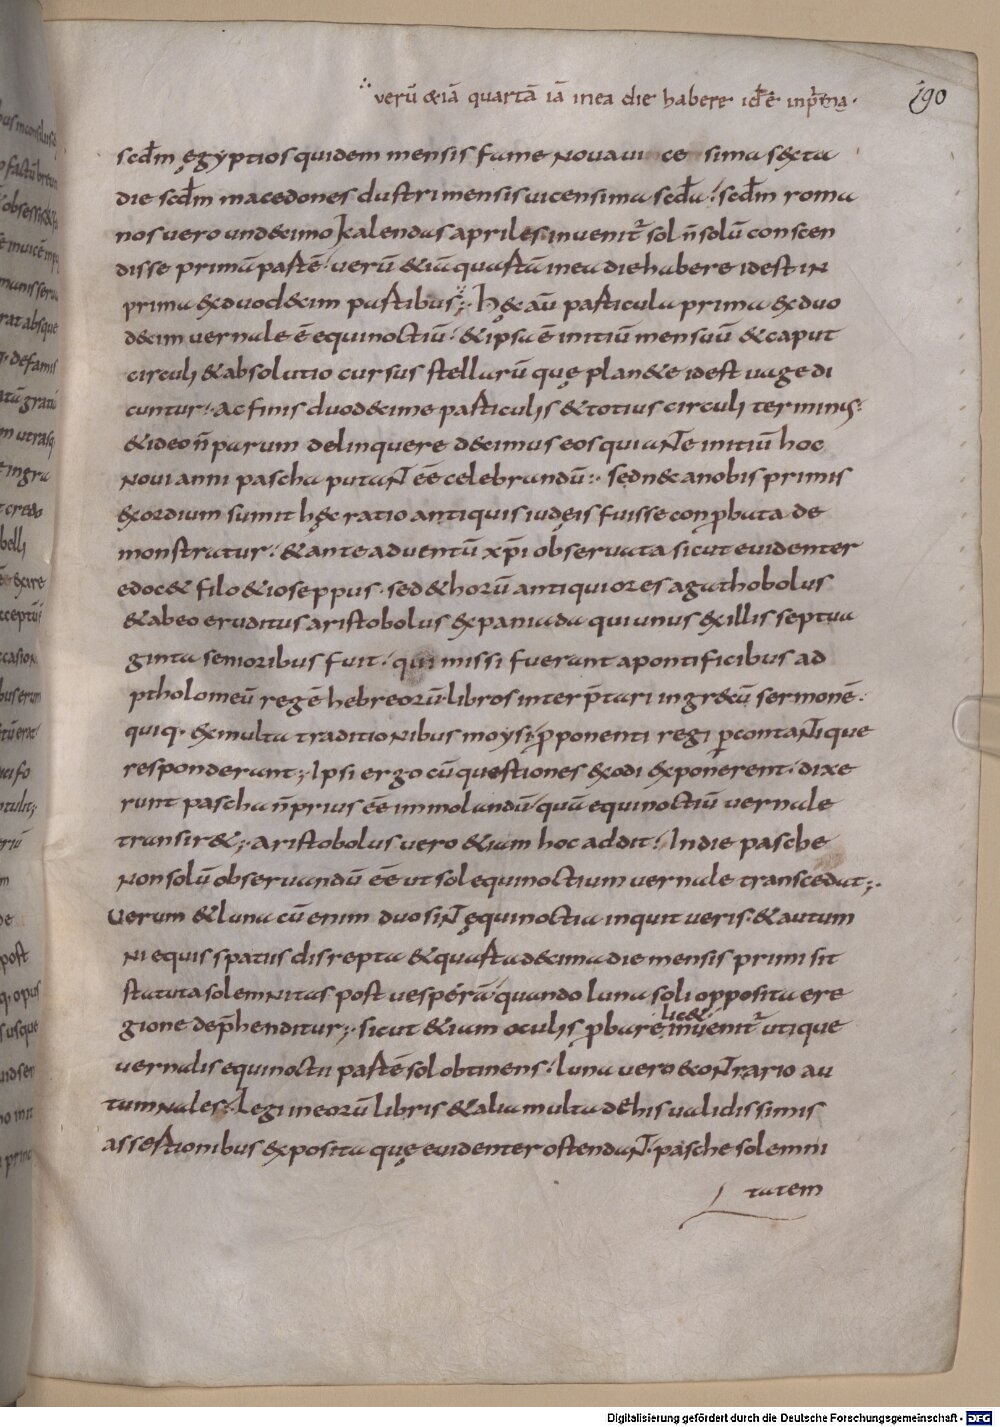 ∴ verū &iā quartā iā inea die habere idē inpͥma·
190
scdm ęgyptios quidem mensis fame Novaui ce sima sexta
die scdm macedones dustri mensis uicensima scda· scdm roma
nos vero undecimo kalendas apriles invenitr̄ sol n̄ solū conscen
disse primā partē· verū &iā quartā inea die habere idest iN
prima exduodecim partibus; Hęc aū particula prima exduo
decim vernale ē equinoctiū· &ipsa ē initiū mensuū &caput
circuli &absolutio cursus stellarū quę planete idest uage di
cuntur· Ac finis duodecime particulis &totius circuli terminis·
&ideo n̄ parum delinquere decimus eos qui aNte initiū hoc
Novi anni pascha putaNt eē celebrandū·· sed nec anobis primis
exordium sumit hęc ratio antiquis iudęis fuisse conpbata de
monstratur· &ante adventū xp̄i observata sicut evidenter
edoc& filo &ioseppus· sed &horū antiquiores agathobolus
&abeo eruditus aristobolus expaniada qui unus exillis septua
ginta senioribus fuit· qui missi fuerant apontificibus ad
ptholomeū regē hebreorū libros interp̄tari ingrecū sermonē·
quiq· exmulta traditioNibus moysi pponenti regi pcontaNtique
responderunt; Ipsi ergo cū questiones exodi exponerent· dixe
runt pascha n̄ prius eē immolandū quā equinoctiū vernale
transir&; Aristobolus vero &iam hoc addit· Indie pasche
Non solū observandū eē ut sol equinoctium vernale transcedat;·
Verum &luna cū enim duo siNt ęquinoctia inquit veris· &autum
Ni equis spatiis disrepta &quarta decima die mensis primi sit
statuta solemNitas post vesperā quando luna soli opposita ere
gione dep̄henditur; sicut &iam oculis pbare lic& invenitr̄ utique
vernalis equinoctii partē sol obtinens· luna vero econtrario au
tumNales· Legi ineorū libris &alia multa dehis validissimis
assertionibus exposita quę evidenter ostendaNt· pasche solemni
tatem
Digitalisierung gefördert durch die Deutsche Forschungsgemeinschaft - DFG